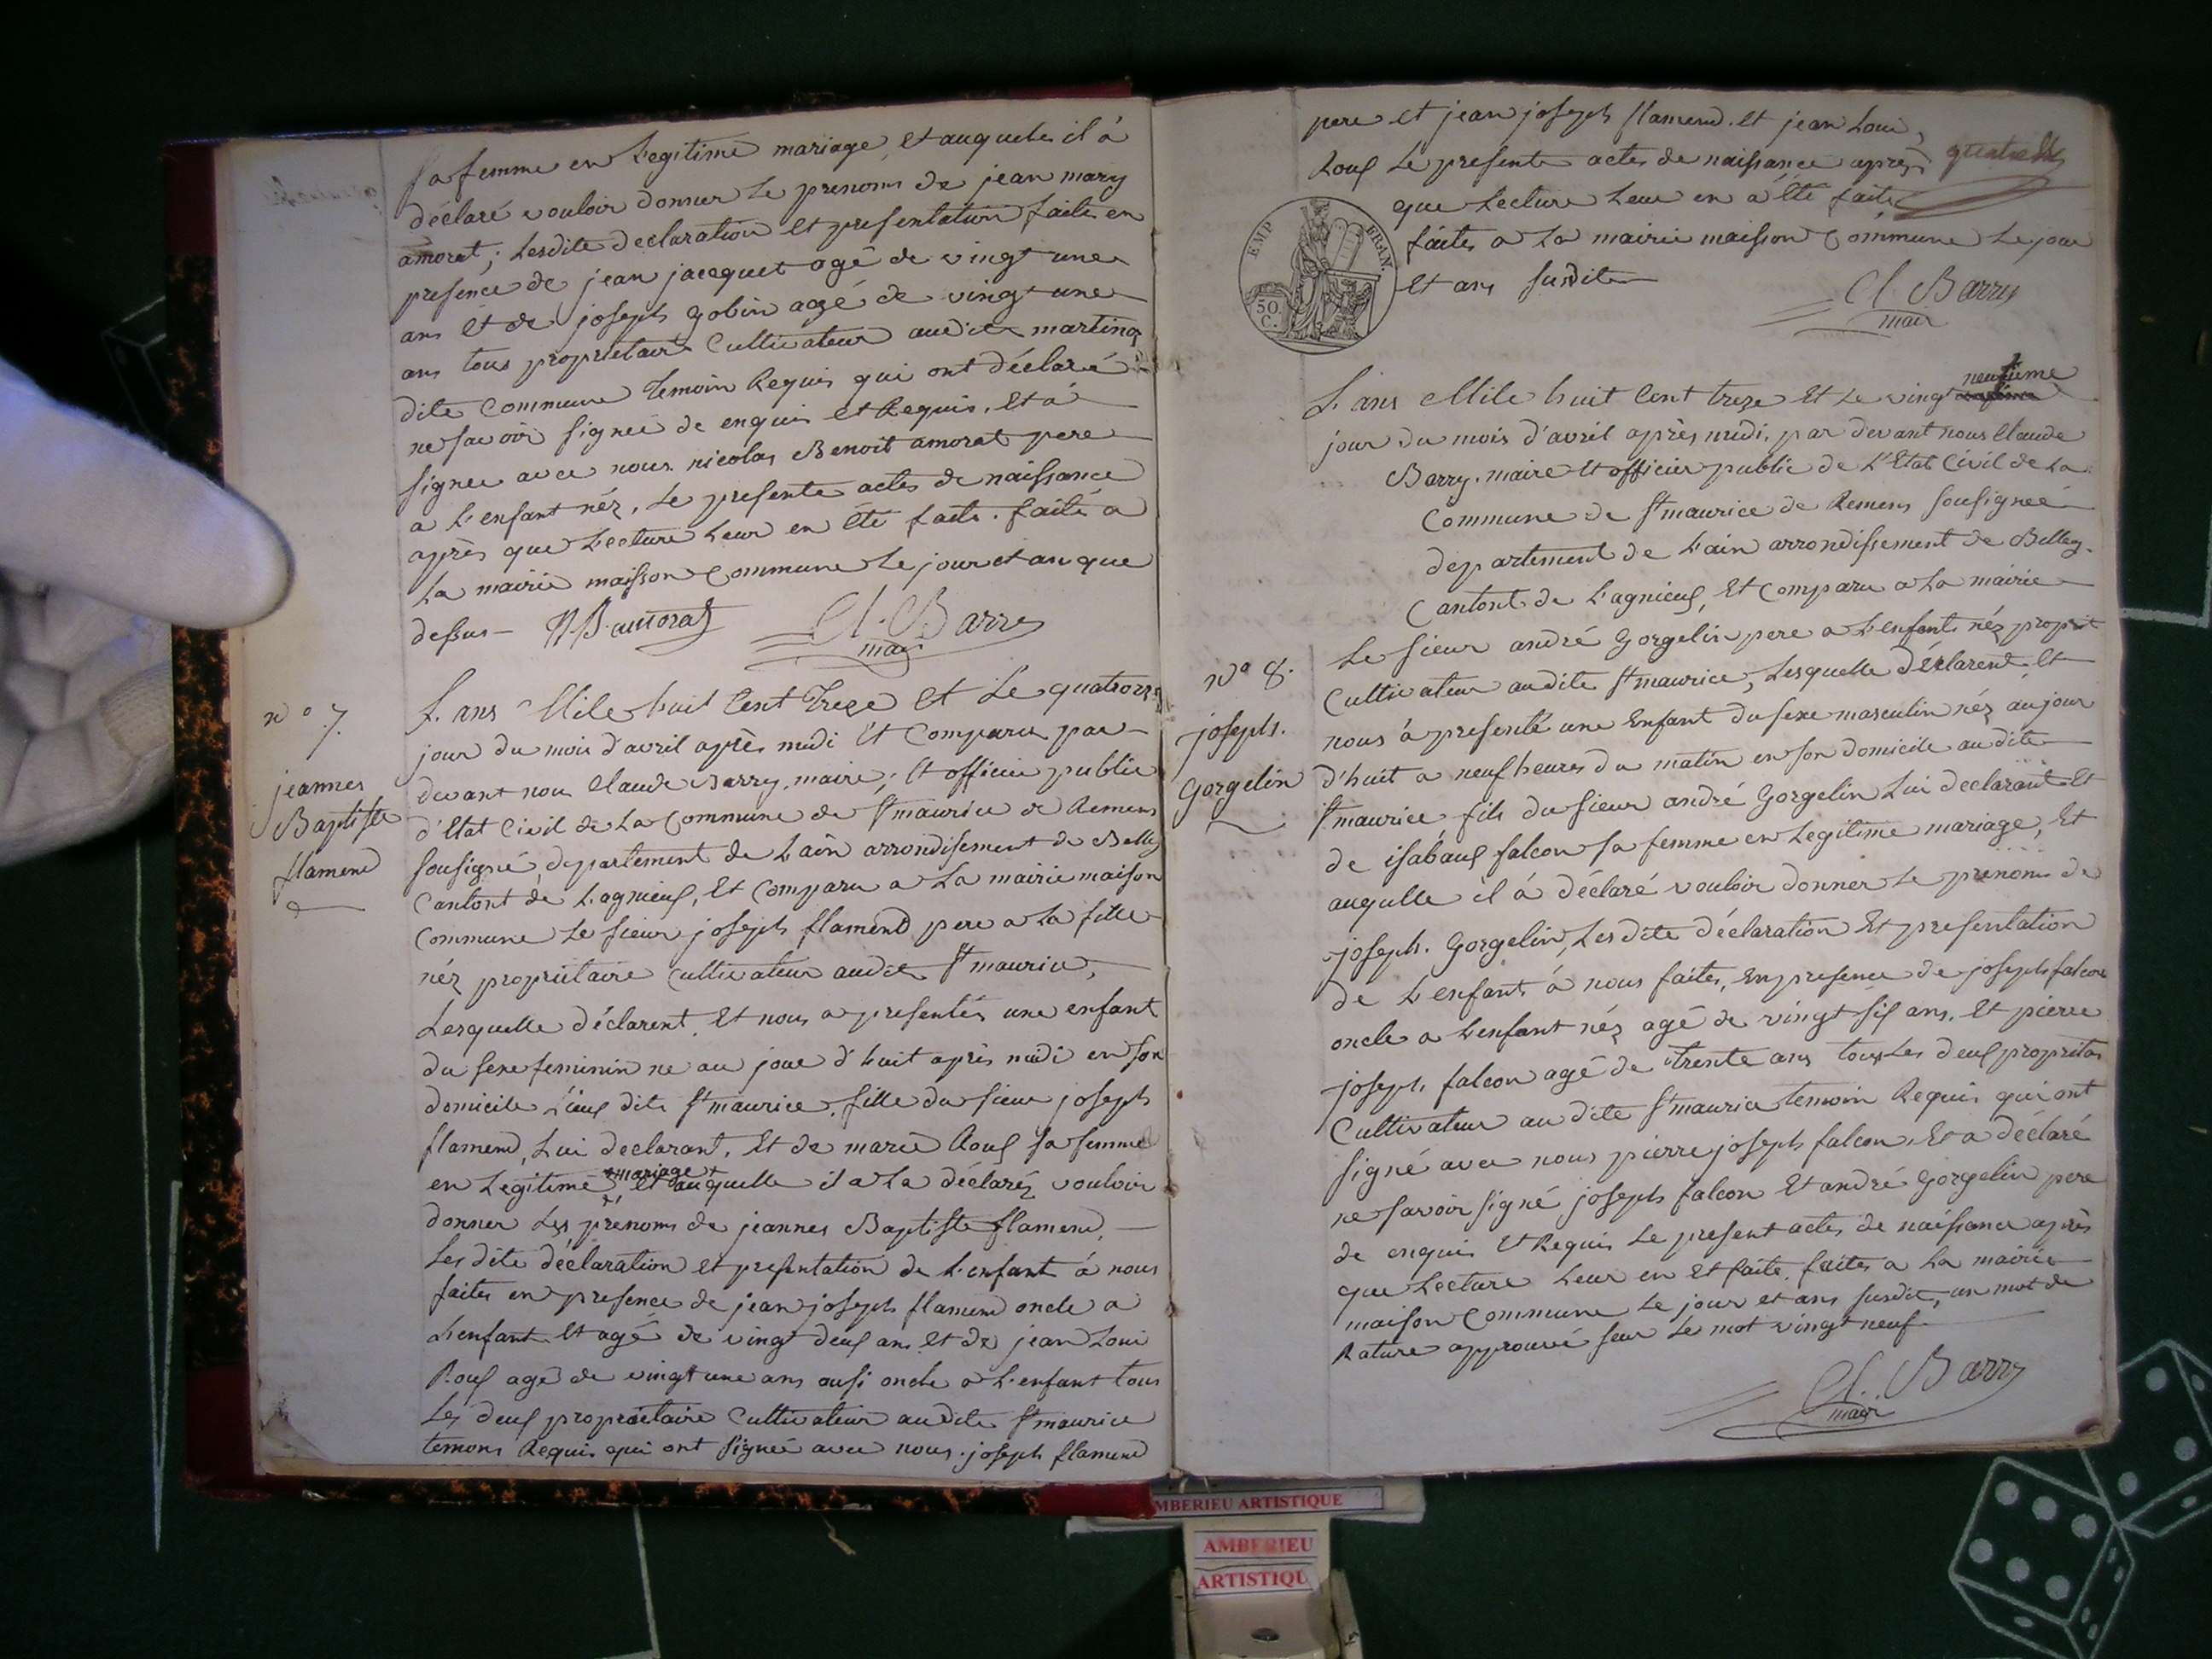 sa femme en Legitime mariage, et auquelle il à
déclaré vouloir donner Le prenoms de jean mary
amorat; Lesdite declaration et presentation faite en
presence de jean jacquet agé de vingt une
ans et de joseph gobin agé de vingt une
ans tous proprietaire Cultivateur audite martinaz
dite Commune temoin Requis qui ont déclaré
ne savoir signeé de enquis et Requis, et à
signee avec nous nicolas Benoit amorat pere
a L'enfant néz, Le presente actes de naissance
après que Lecture Leur en été faite. faite a
La mairie maison Commune Le jour et an que
dessus — N. B. amorat Cl. Barry
mair
n° 7.
jeannes
Baptiste
flamend
L'ans Mile huit Cent Treze et Le quatorze
jour du mois d'avril après midi et Comparu par
devant nous Claude Barry, maire, et officier public
d'Etat Civil de La Commune de St maurice de Remens
sousigné, departement de L'ain arrondisement de Belley
Cantont de Lagnieux, et Comparu a La mairie maison
Commune Le sieur joseph flamend pere a La fille
néz propriétaire Cultivateur audite St maurice,
Lesquelle déclarent, Et nous a presentés une enfant
du sexe feminin ne au jour d'huit après midi en son
domicile Lieux dite St maurice, fille du sieur joseph
flamend, Lui declarant, et de marie Roux sa femme
mariage
en Legitime et auquelle il a La déclaréz vouloir
donner Les prenoms de jeannes Baptiste flamend,
Les dite déclaration et presentation de L'enfant à nous
faites en presence de jean joseph flamend oncle a
L'enfant et agé de vingt deux ans et de jean Loui
Roux agé de vingt une ans ausi oncle a L'enfant tous
Les deux propriétaire Cultivateur audite St maurice
temoins Requis qui ont Signeé avec nous joseph flamend
pere et jean joseph flamend et jean Loui
Roux Le presente actes de naissance après
que Lecture Leur en à Été faite
faites a La mairie maison Commune Le jour
et ans susdite
Cl. Barry
mair
EMP FRAN.
50.
C.
neufieme
L'ans Mile huit Cent treze Et Le vingt
jour du mois d'avril après midi, par devant nous Claude
Barry, maire et officier public de L'Etat Civil de La
Commune de St maurice de Remens sousigneé
departement de L'ain arrondissement de Belley.
Cantont de Lagnieux, et Comparu a La mairie
n° 8.
joseph.
Gorgelin
Le sieur andré Gorgelin pere a L'enfant néz propriet
Cultivateur audite St maurice, Lesquelle déclarent et
nous à presenté une Enfant du sexe masculin néz aujour
d'huit a neuf heures du matin en son domicile audite
St maurice, fils du sieur andré Gorgelin Lui declarant et
de isabaux falcon sa femme en Legitime mariage, Et
auquelle il à déclaré vouloir donner Le prénoms de
joseph. Gorgelin, Les dite déclaration Et presentation
de L'enfant à nous faites, en presence de joseph falcon
oncle a L'enfant néz agé de vingt six ans, et pierre
joseph falcon agé de trente ans tous Les deux proprietai
Cultivateur audite St maurice temoin Requis qui ont
signé avec nous pierre joseph falcon, et a déclaré
ne savoir signé joseph falcon Et andré Gorgelin pere
de enquis Et Requis Le present actes de naissance après
que Lecture Leur en et faite, faites a La mairie
maison Commune Le jour et ans susdit, un mot de
Rature approuvé sur Le mot vingt neuf.
Cl. Barry
mair
AMBERIEU ARTISTIQUE
AMBERIEU
ARTISTIQU